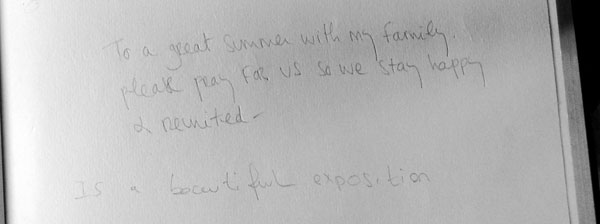 To a great summer with my family.
please pray for us so we stay happy
& reunited -
Is a beautiful exposition